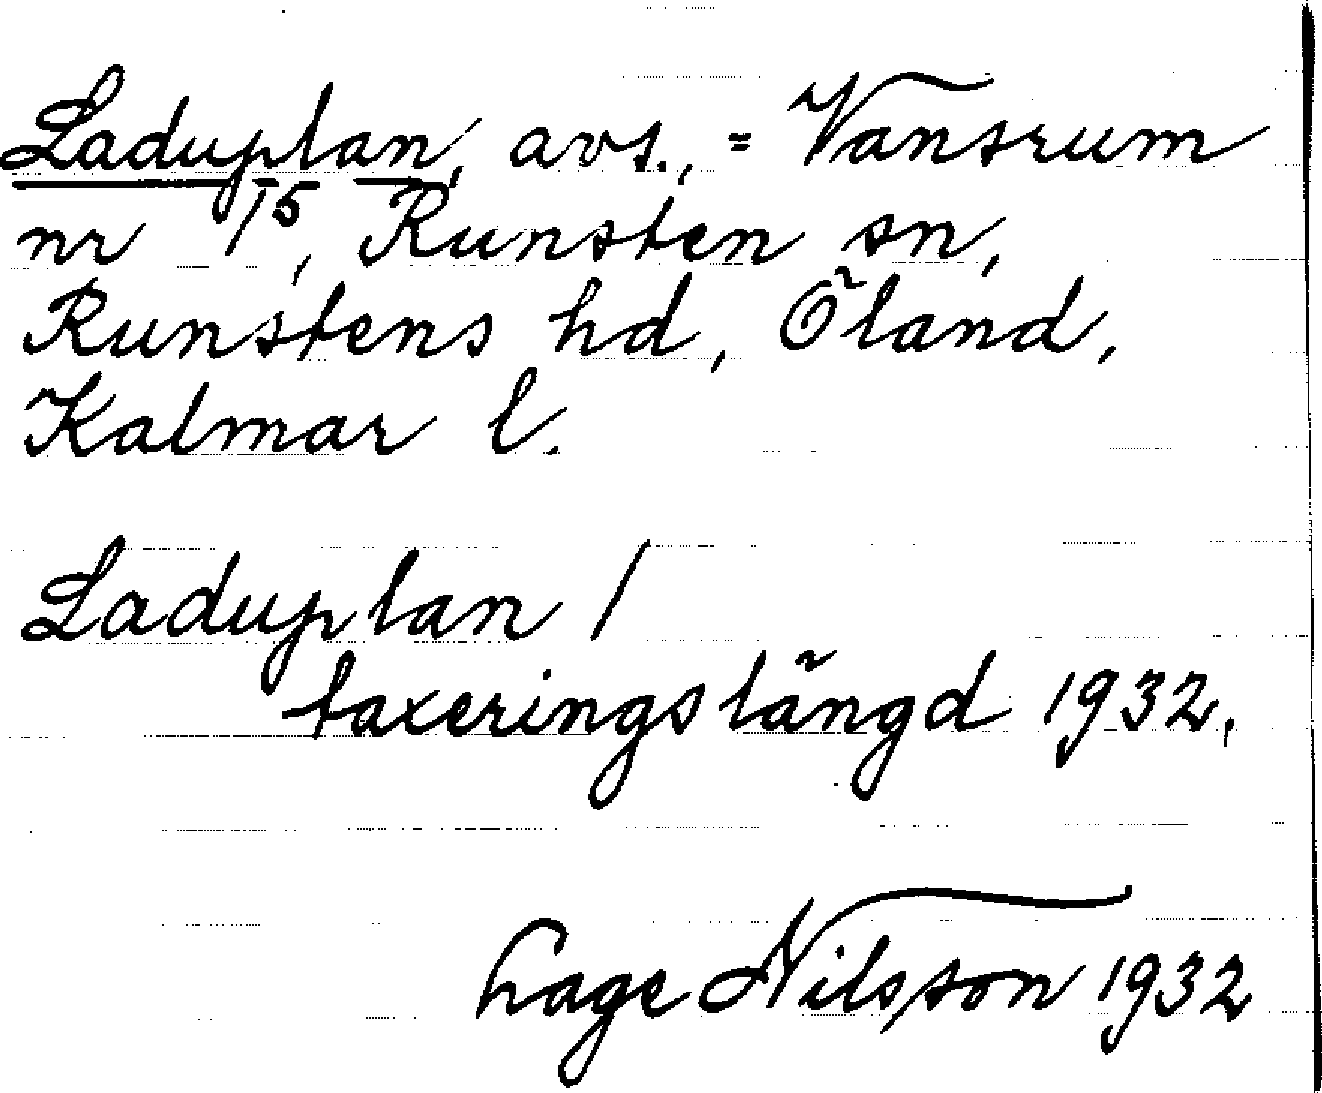 Laduplan, avs., = Vansrum
nr 1⁵, Runsten sn,
Runstens hd, Öland,
Kalmar l.
Laduplan /
taxeringslängd 1932,
hage Nilsson 1932